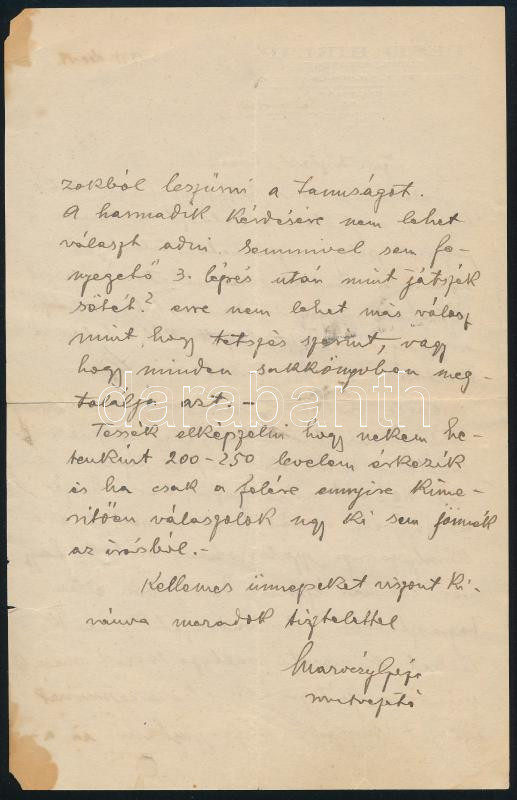 zokból leszűrni a tanuságot.
A harmadik kérdésére nem lehet
választ adni. Semmivel sem fe-
nyegető 3. lépés után mint játszék
sötét? erre nem lehet más válasz
mint, hogy tetszés szerint, vagy
hogy minden sakkönyvben meg-
találja azt. –
darabanth
Tessék elképzelni hogy nekem he-
tenkint 200–250 levelem érkezik
és ha csak a felére ennyire kime-
ritően válaszolok ugy ki sem jönnék
az irásból. –
Kellemes ünnepeket viszont ki-
vánva maradok tisztelettel
Maróczy Géza